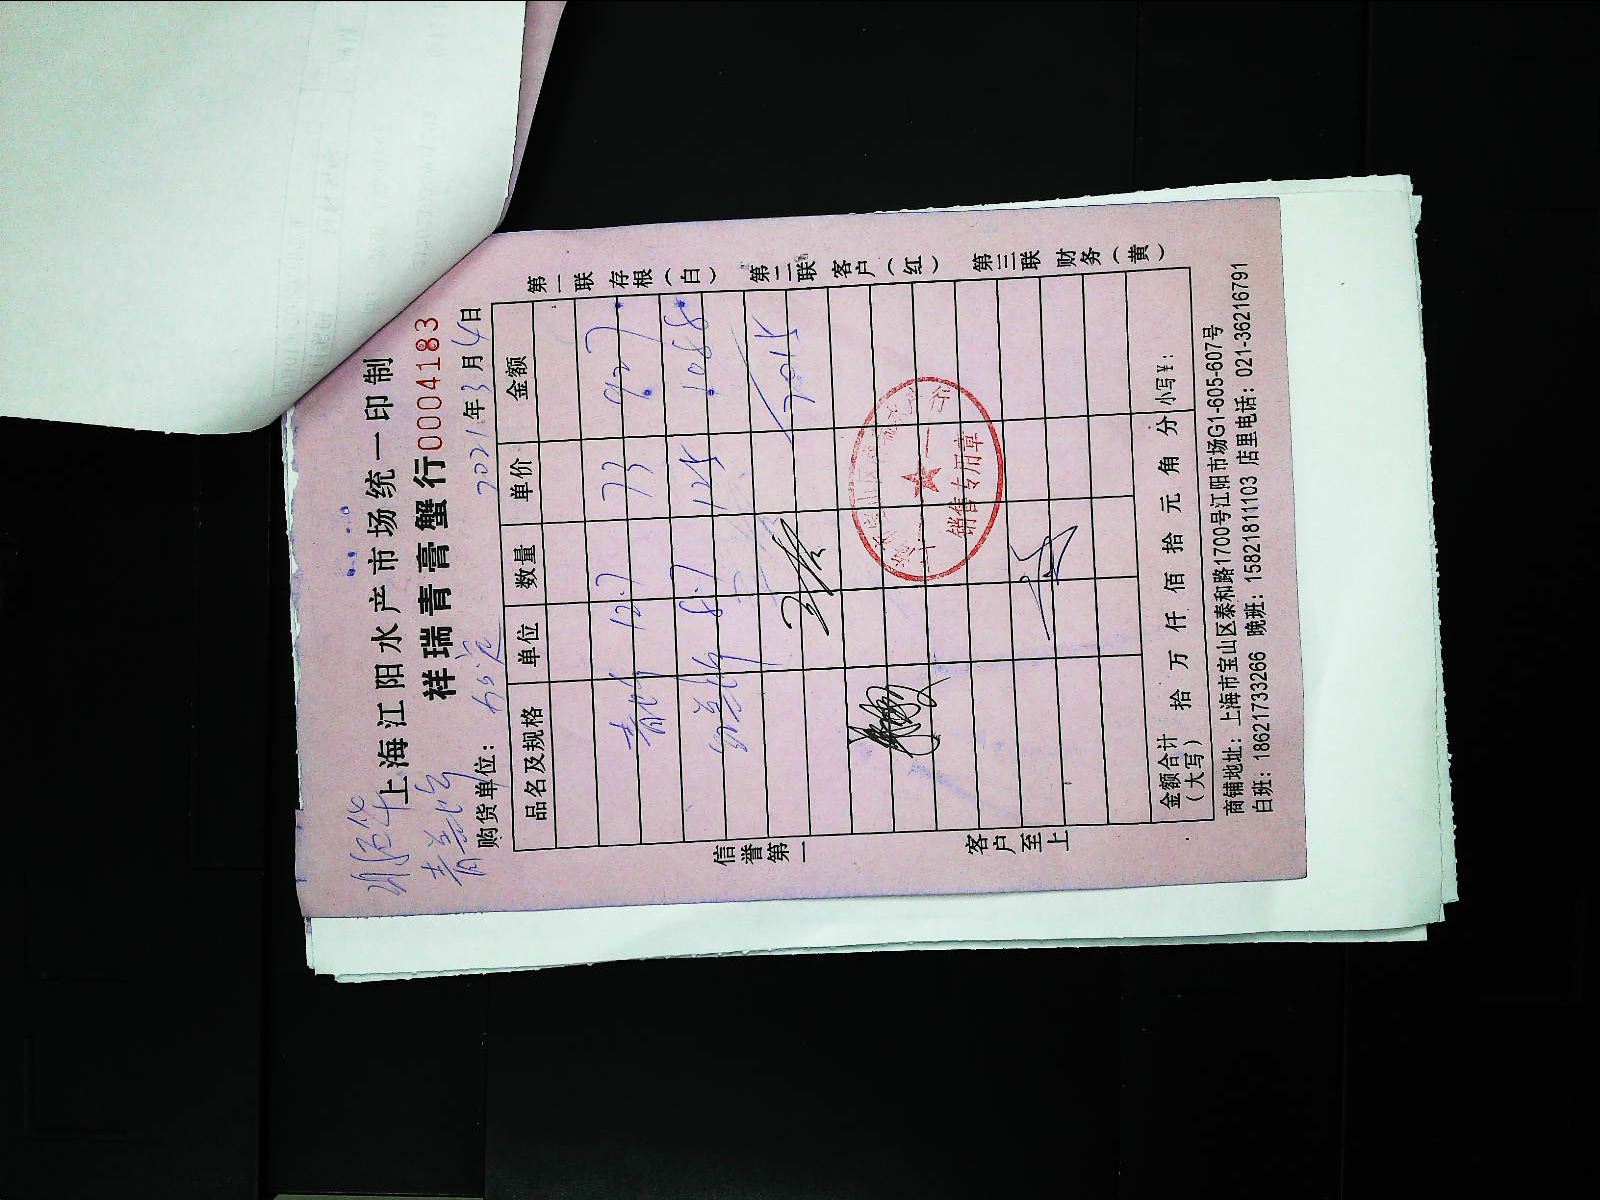 上海江阳水产市场统一印制
祥瑞青膏蟹行 0004183
购货单位： 2021年3月4日
品名及规格 单位 数量 单价 金额
12.7 73 927.
8.7 125 1088.
2015
金额合计（大写） 拾 万 仟 佰 拾 元 角 分 小写¥：
商铺地址：上海市宝山区泰和路1700号江阳市场G1-605-607号
白班：18621733266 晚班：15821811103 店里电话：021-36216791
第一联 存根（白） 第二联 客户（红） 第三联 财务（黄）
信誉第一 客户至上
销售专用章